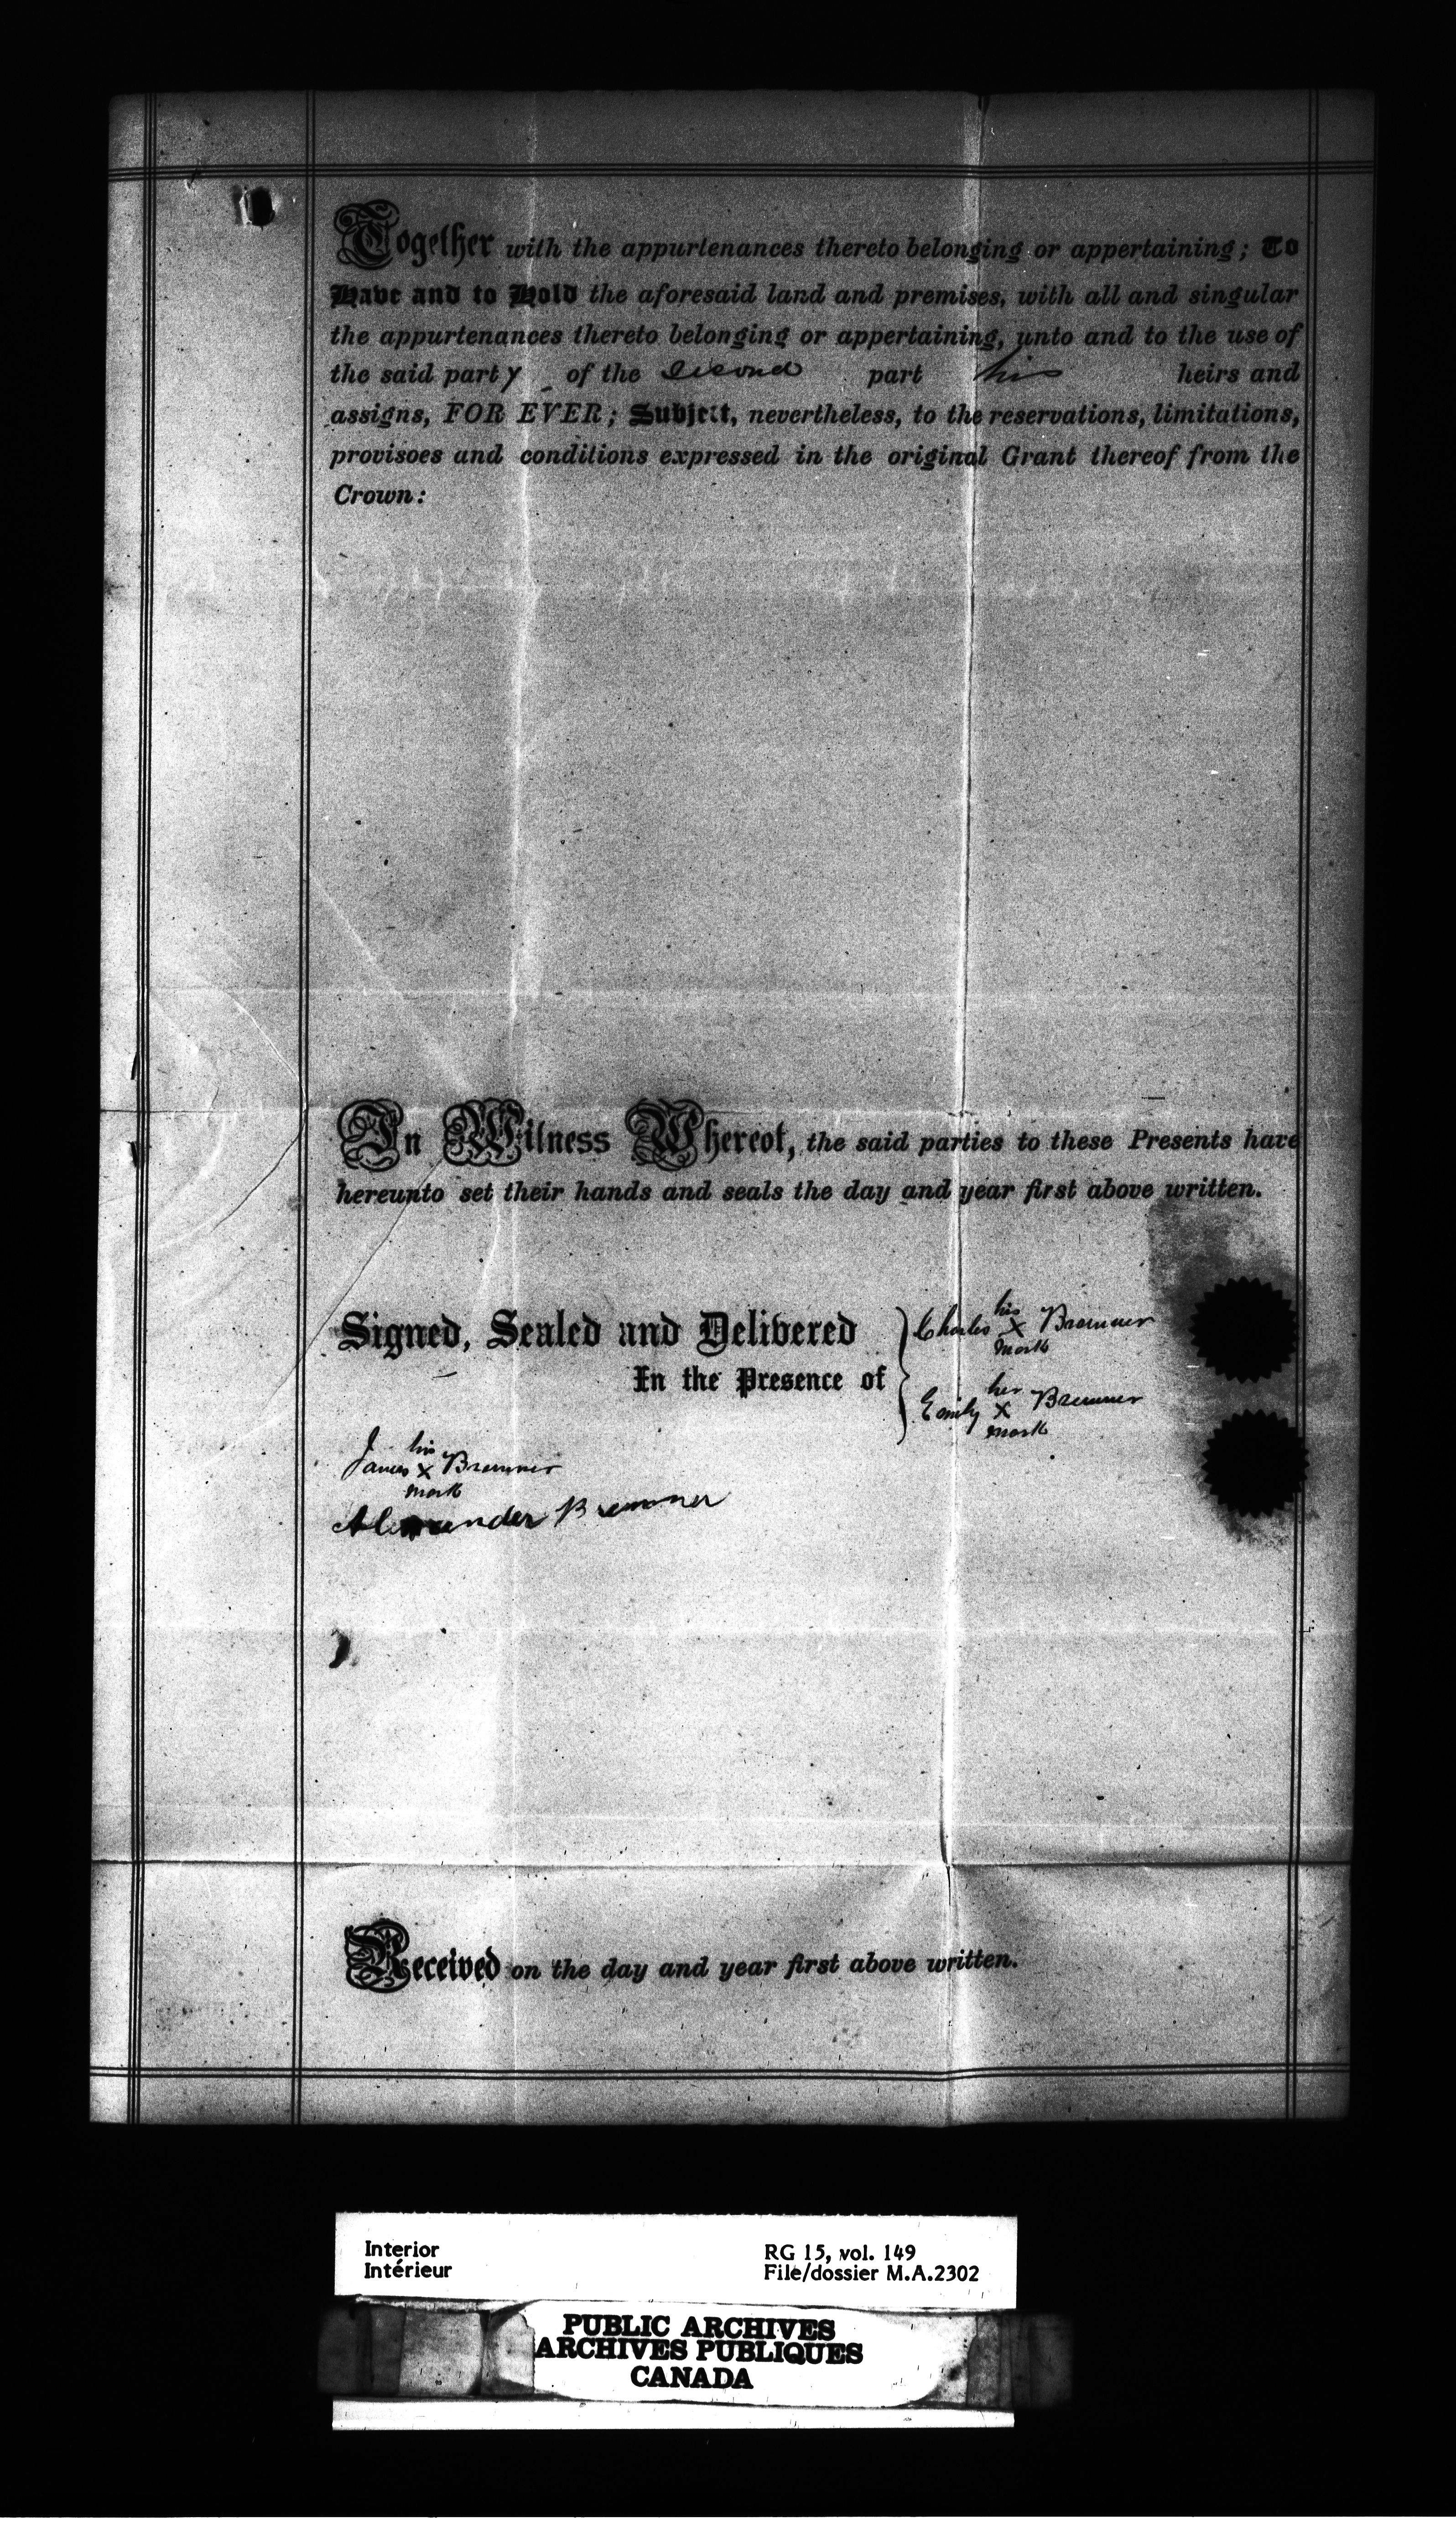 Together with the appurtenances thereto belonging or appertaining; To
Have and to Hold the aforesaid land and premises, with all and singular
the appurtenances thereto belonging or appertaining, unto and to the use of
the said party of the second part his heirs and
assigns, FOR EVER; Subject, nevertheless, to the reservations, limitations,
provisoes and conditions expressed in the original Grant thereof from the
Crown:
In Witness Whereof, the said parties to these Presents have
hereunto set their hands and seals the day and year first above written.
Signed, Sealed and Delivered
In the Presence of
his
Charles X Bremner
mark
her
Emily X Bremner
mark
his
James X Bremner
mark
Alexander Bremner
Received on the day and year first above written.
Interior
Intérieur
RG 15, vol. 149
File/dossier M.A.2302
PUBLIC ARCHIVES
ARCHIVES PUBLIQUES
CANADA